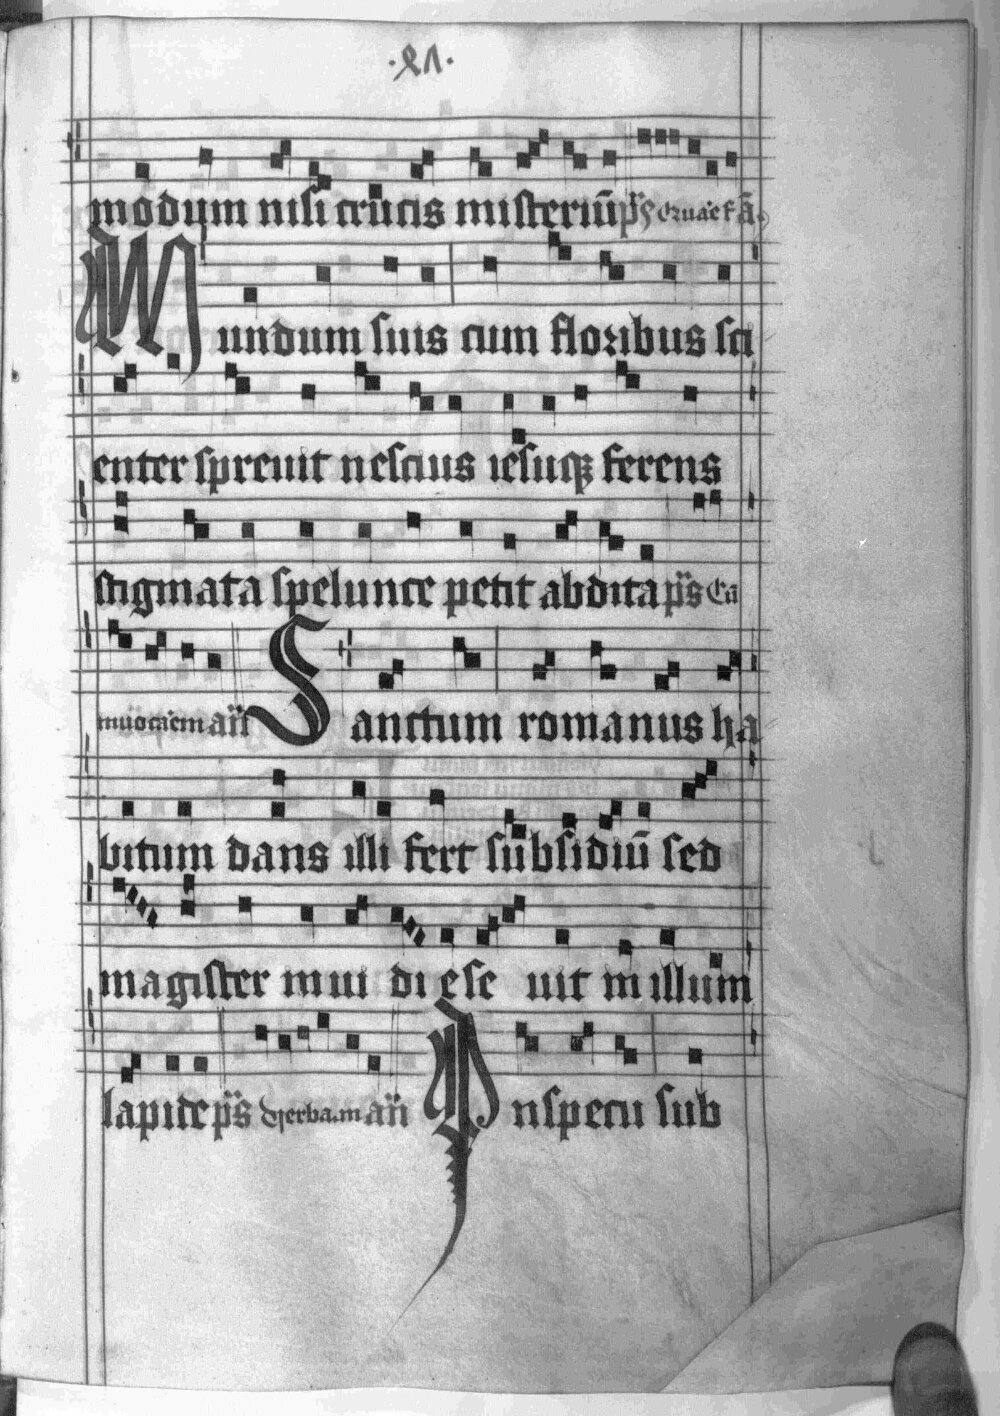 modum nisi crucis misteriū p̄s
Mundum suis cum floribus sci
enter spreuit nescius iesuqꝫ ferens
stigmata spelunce petit abdita p̄s Cū
inuocarem an̄ Sanctum romanus ha
bitum dans illi fert subsidiū sed
magister mui di ese uit in illum
lapide p̄s Uerba.m an̄ Inspecu sub